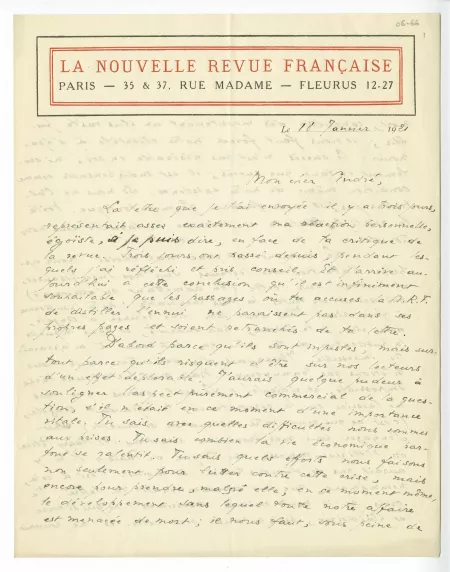 06-66
1
LA NOUVELLE REVUE FRANÇAISE
PARIS — 35 & 37, RUE MADAME — FLEURUS 12-27
Le 18 Janvier 1921
Mon cher André,
La lettre que je t'ai envoyée il y a trois jours,
représentait assez exactement ma réaction personnelle,
égoïste, si je puis dire, en face de ta critique de
la revue. Trois jours ont passé depuis, pendant les-
quels j'ai réfléchi et pris conseil. Et j'arrive au-
jourd'hui à cette conclusion qu'il est infiniment
souhaitable que les passages où tu accuses la N.R.F.
de distiller l'ennui ne paraissent pas dans ses
propres pages et soient retranchés de ta lettre.
D'abord parce qu'ils sont injustes, mais sur-
tout parce qu'ils risquent d'être sur nos lecteurs
d'un effet déplorable. J'aurais quelque pudeur à
souligner l'aspect purement commercial de la ques-
tion, s'il n'était en ce moment d'une importance
vitale. Tu sais avec quelles difficultés nous sommes
aux prises. Tu sais combien la vie économique par-
tout se ralentit. Tu sais quels efforts nous faisons
non seulement pour lutter contre cette crise, mais
encore pour prendre, malgré elle, en ce moment même,
le développement sans lequel toute notre affaire
est menacée de mort ; il nous faut, sous peine de